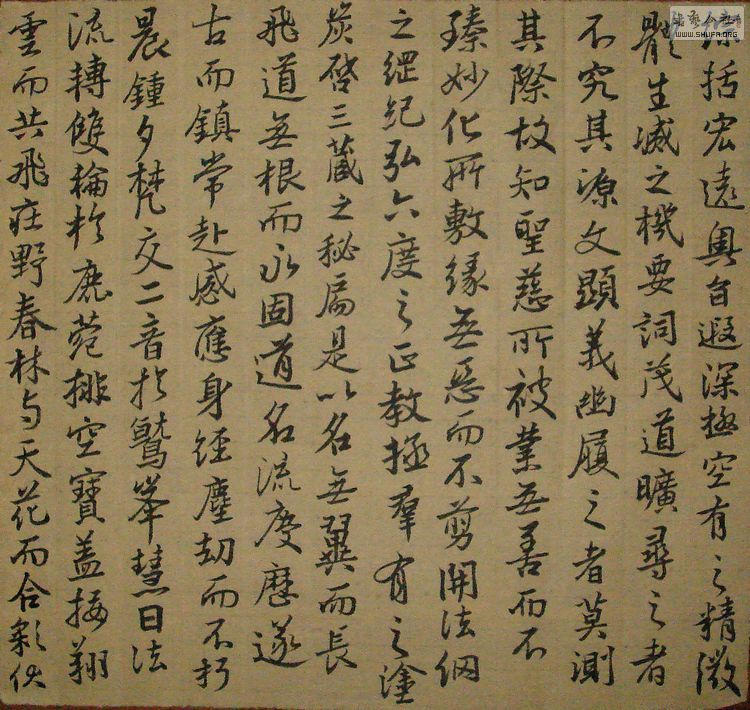 括宏遠奧旨遐深極空有之精微
體生滅之機要詞茂道曠尋之者
不究其源文顯義幽履之者莫測
其際故知聖慈所被業無善而不
臻妙化所敷緣無惡而不剪開法網
之綱紀弘六度之正教拯羣有之塗
炭啓三藏之秘扃是以名無翼而長
飛道無根而永固道名流慶歷遂
古而鎮常赴感應身經塵劫而不朽
晨鍾夕梵交二音於鷲峯慧日法
流轉雙輪於鹿菀排空寶蓋接翔
雲而共飛莊野春林与天花而合彩伏
WWW.SHUFA.ORG